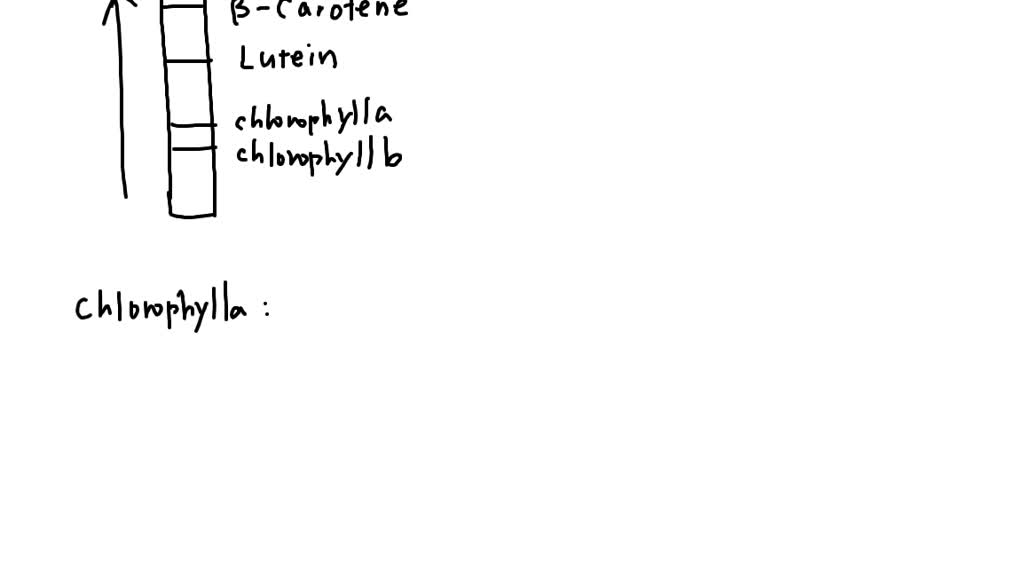 β-Carotene
Lutein
chlorophylla
chlorophyllb
chlorophylla: